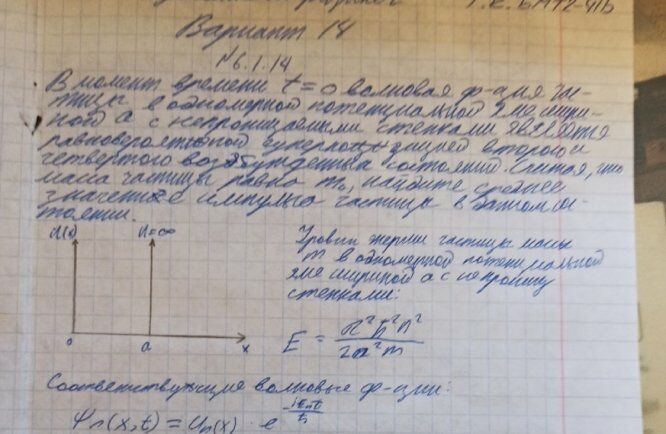 Вариант 14
№6.1.14
В момент времени t=0 волновая ф-ция час-
тицы в одномерной потенциальной яме шири-
ной а с непроницаемыми стенками является
равновероятной суперпозицией второго и
четвертого возбужденных состояний. Считая, что
масса частицы равна m₀, найдите среднее
значение импульса частицы в этом сос-
тоянии.
U=∞
0 a x
Уровни энергии частицы массы
m в одномерной потенциальной
яме шириной a с непрониц
стенками:
E = π²ħ²n² / 2a²m
Соответствующие волновые ф-ции:
Ψn(x,t) = Un(x) · e^(-iEnt/ħ)